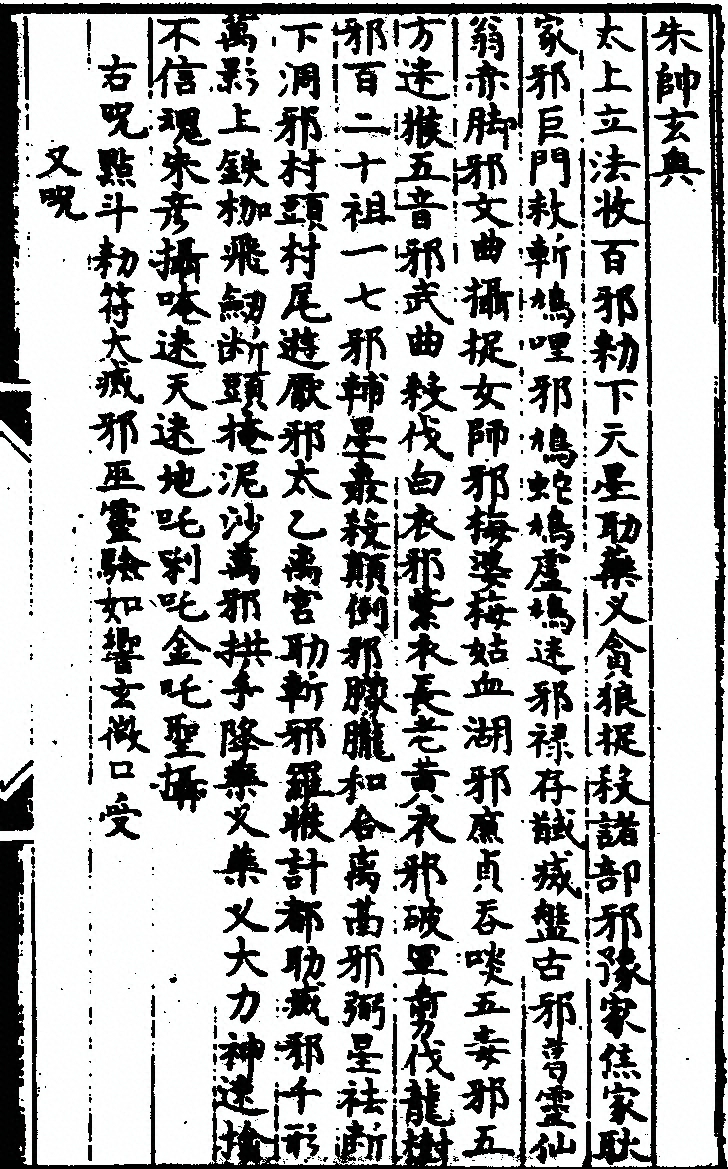 朱帥玄奧
太上立法收百邪勑下天星助藥叉貪狼捉殺諸部邪豫家焦家耿
家邪巨門敕斬鳩哩邪鳩蛇鳩盧鳩迷邪祿存馘滅盤古邪葛靈仙
翁赤脚邪文曲攝捉女師邪梅婆梅姑血湖邪廉貞吞啖五毒邪五
方迷猴五音邪武曲殺伐白衣邪紫衣長老黃衣邪破軍剪伐龍樹
邪百二十祖一七邪輔星裹殺顛倒邪朦朧和合离卨邪弼星祛斷
下洞邪村頭村尾遊厭邪太乙离宮助斬邪羅猴計都助滅邪千形
萬影上鉄枷飛劒斷頭掩泥沙萬邪拱手降藥叉藥叉大力神速擒
不信魂朱彥攝唵速天速地吒利吒金吒聖攝
右呪點斗勑符大滅邪巫靈驗如響玄微口受
又呪